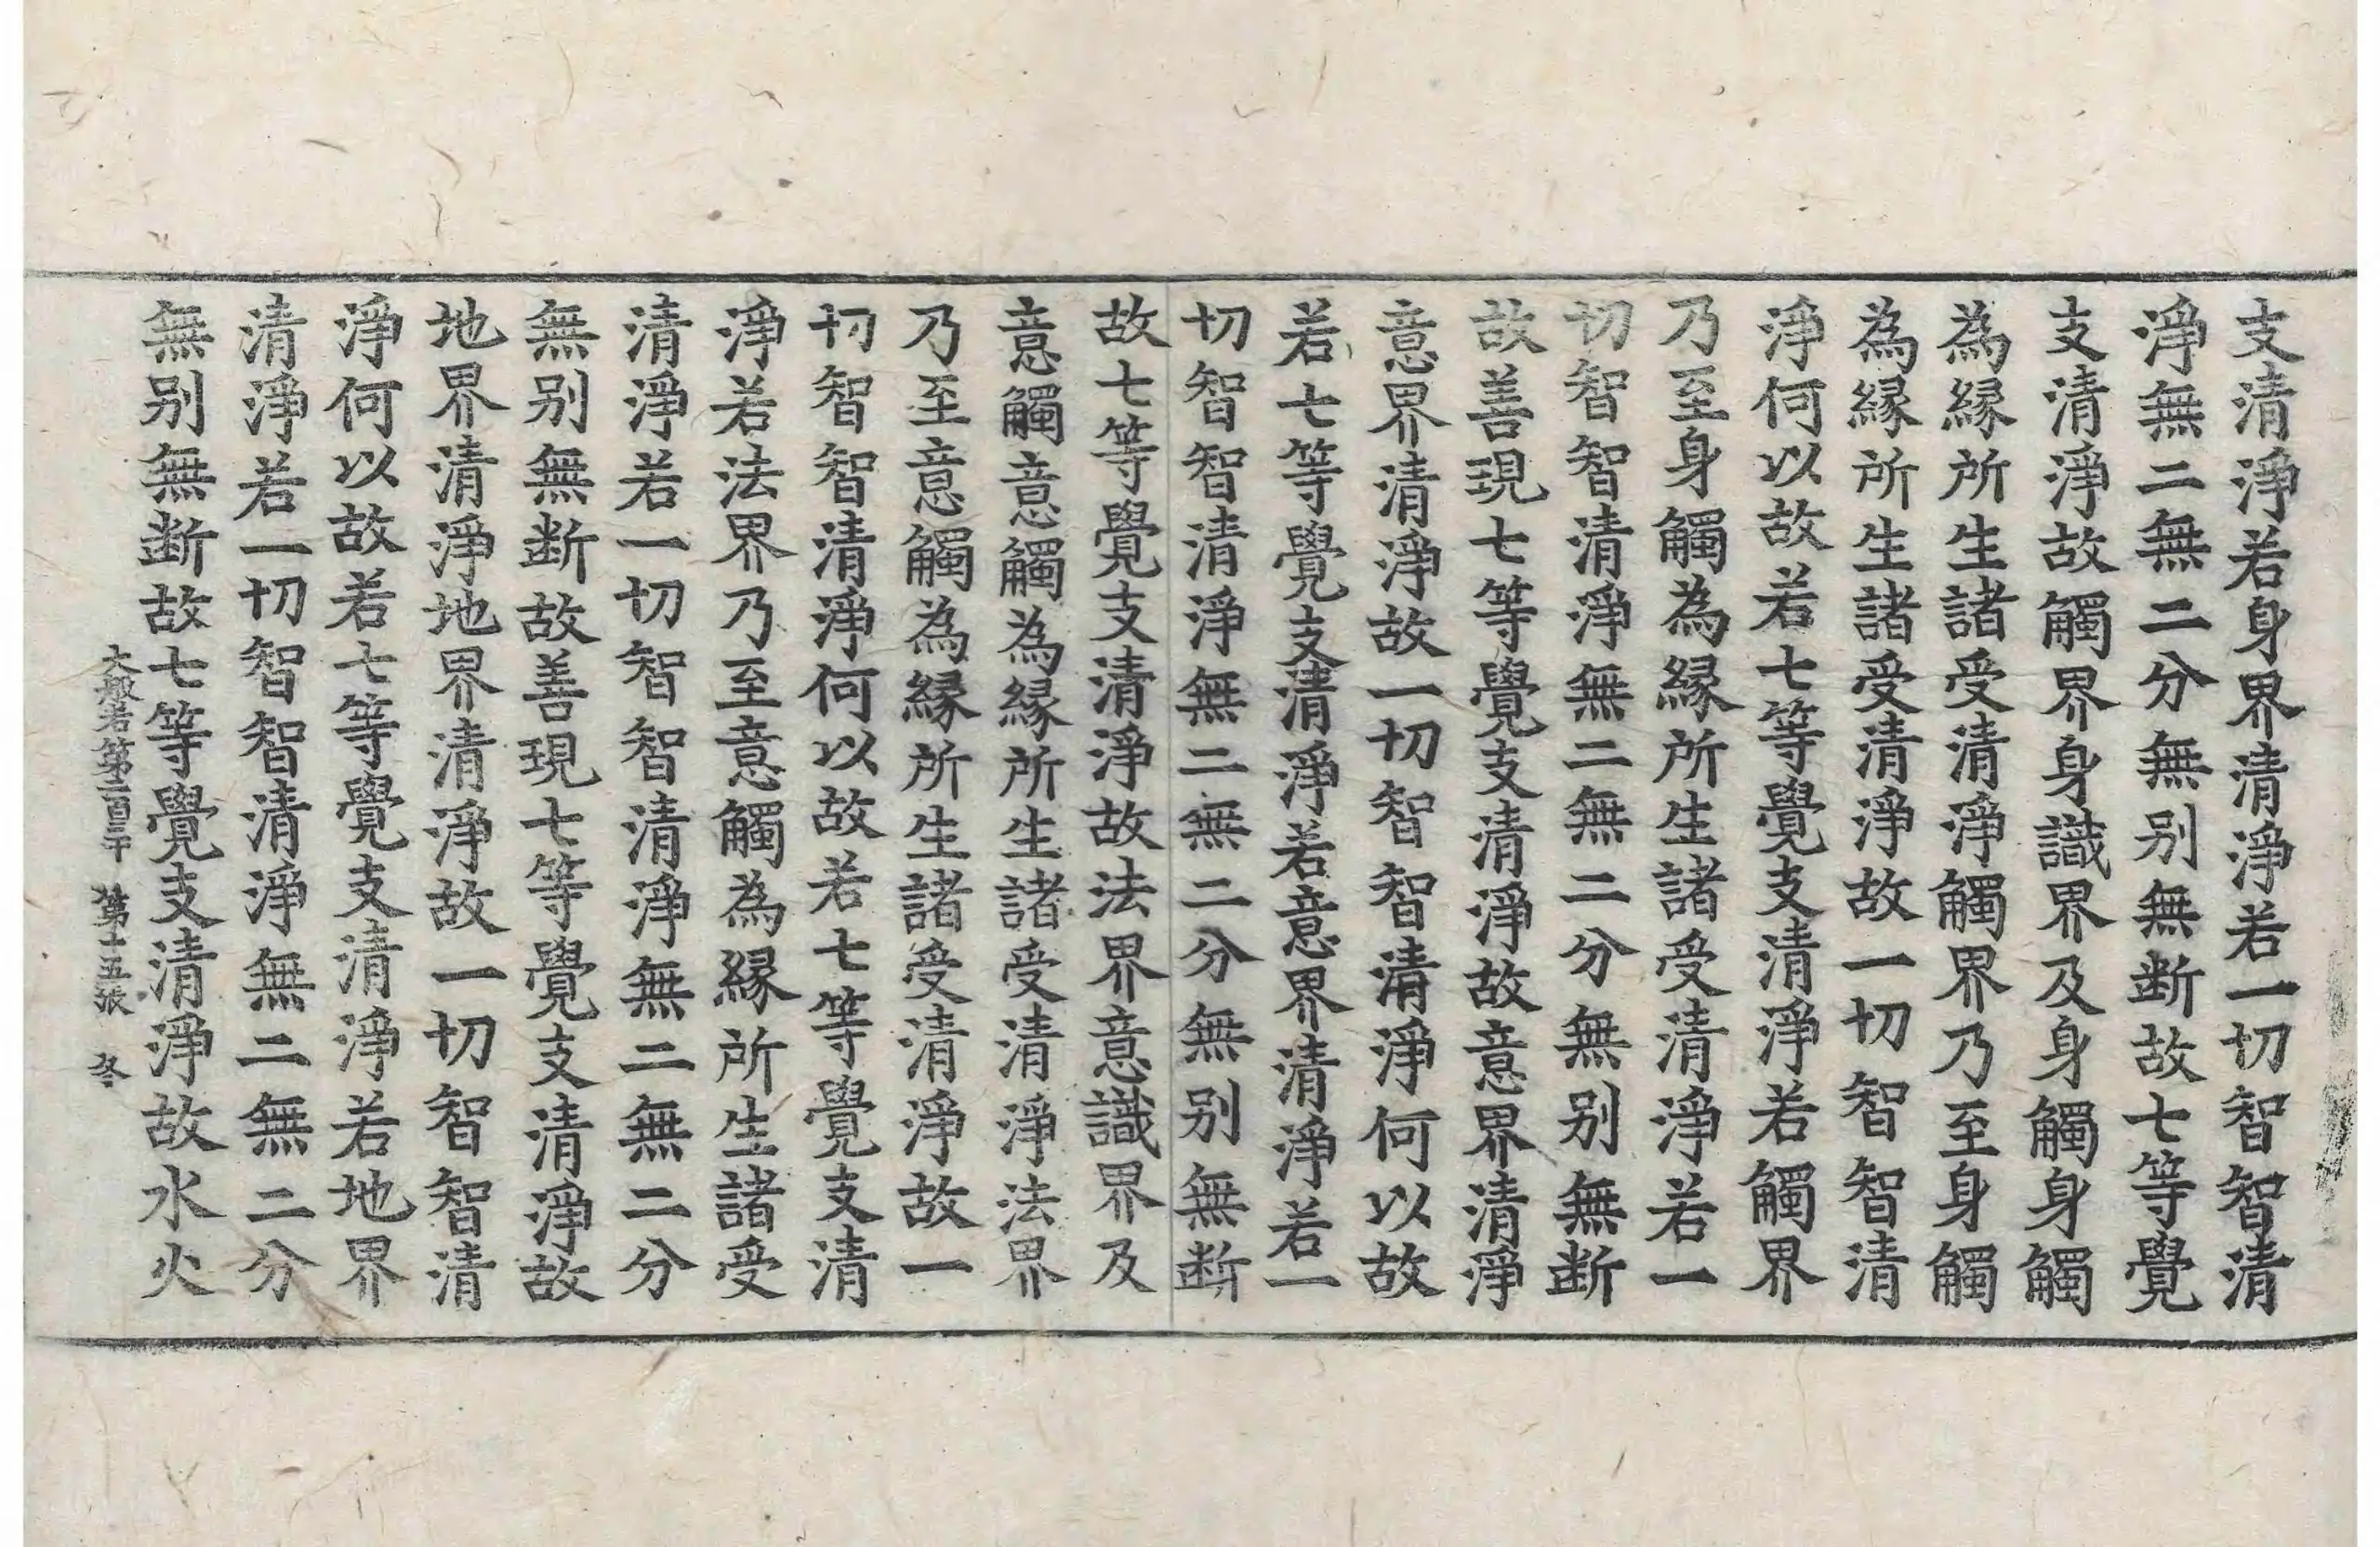 支清淨若身界清淨若一切智智清
淨無二無二分無别無断故七等覺
支清淨故觸界身識界及身觸身觸
為縁所生諸受清淨觸界乃至身觸
為縁所生諸受清淨故一切智智清
淨何以故若七等覺支清淨若觸界
乃至身觸為縁所生諸受清淨若一
切智智清淨無二無二分無别無断
故善現七等覺支清淨故意界清淨
意界清淨故一切智智清淨何以故
若七等覺支清淨若意界清淨若一
切智智清淨無二無二分無别無断
故七等覺支清淨故法界意識界及
意觸意觸為縁所生諸受清淨法界
乃至意觸為縁所生諸受清淨故一
切智智清淨何以故若七等覺支清
淨若法界乃至意觸為縁所生諸受
清淨若一切智智清淨無二無二分
無别無断故善現七等覺支清淨故
地界清淨地界清淨故一切智智清
淨何以故若七等覺支清淨若地界
清淨若一切智智清淨無二無二分
無别無断故七等覺支清淨故水火
大般若第二百三十 第十五張 冬